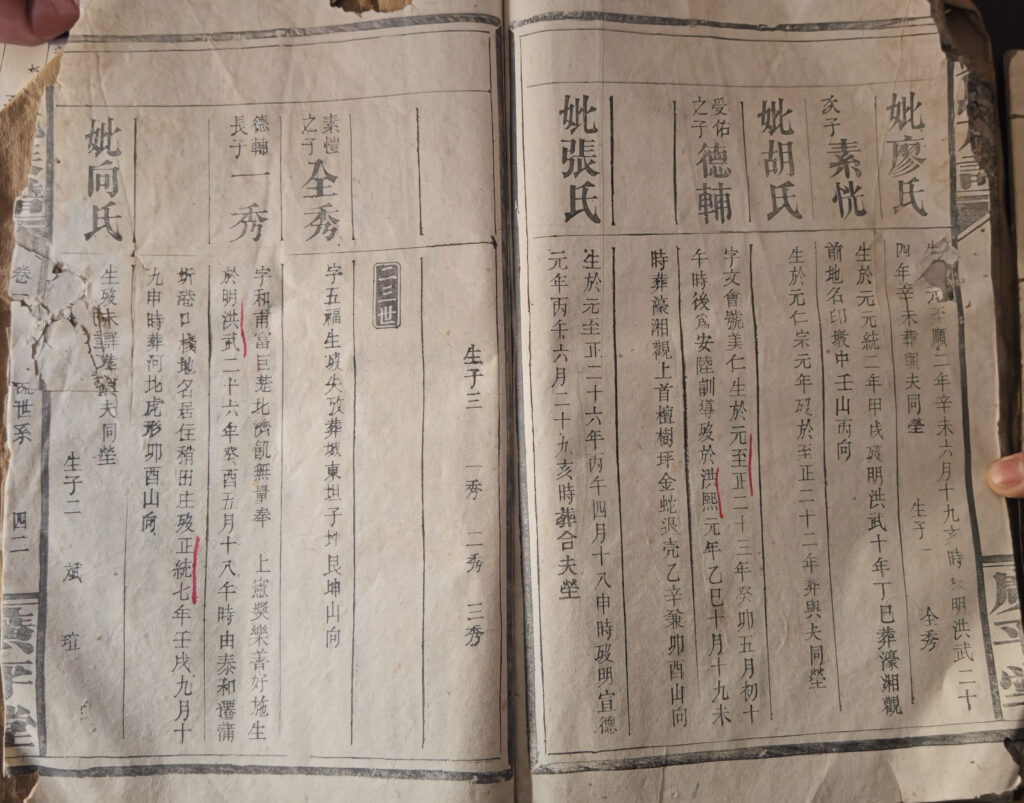 妣廖氏
元至順二年辛未六月十九亥時歿明洪武二十
四年辛未葬與夫同塋 生子一 全秀
次子 素恍
生於元元統二年甲戌歿明洪武十年丁巳葬濠湘觀
前地名印墩中壬山丙向
妣胡氏
生於元仁宗元年歿於至正二十二年葬與夫同塋
愛佑之子 德輔
字文會號美仁生於元至正二十三年癸卯五月初十
午時後爲安陸訓導歿於洪熙元年乙巳十月十九未
時葬濠湘觀上首檀樹坪金蛇退壳乙辛兼卯酉山向
妣張氏
生於元至正二十六年丙午四月十八申時歿明宣德
元年丙午六月二十九亥時葬合夫塋
生子三 一秀 二秀 三秀
二三世
素愷之子 全秀
字五福生歿失攷葬城東坦子坵艮坤山向
德輔長子 一秀
字和甫富巨楚北濟飢無量奉 上憲獎樂善好施生
於明洪武二十六年癸酉五月十八午時由泰和遷蒲
圻港口橋地名居住稍田庄歿正統七年壬戌九月十
九申時葬河北虎形卯酉山向
妣向氏
生歿未詳葬與夫同塋
生子二 斌 瑄
卷
世系
四二
慶平堂